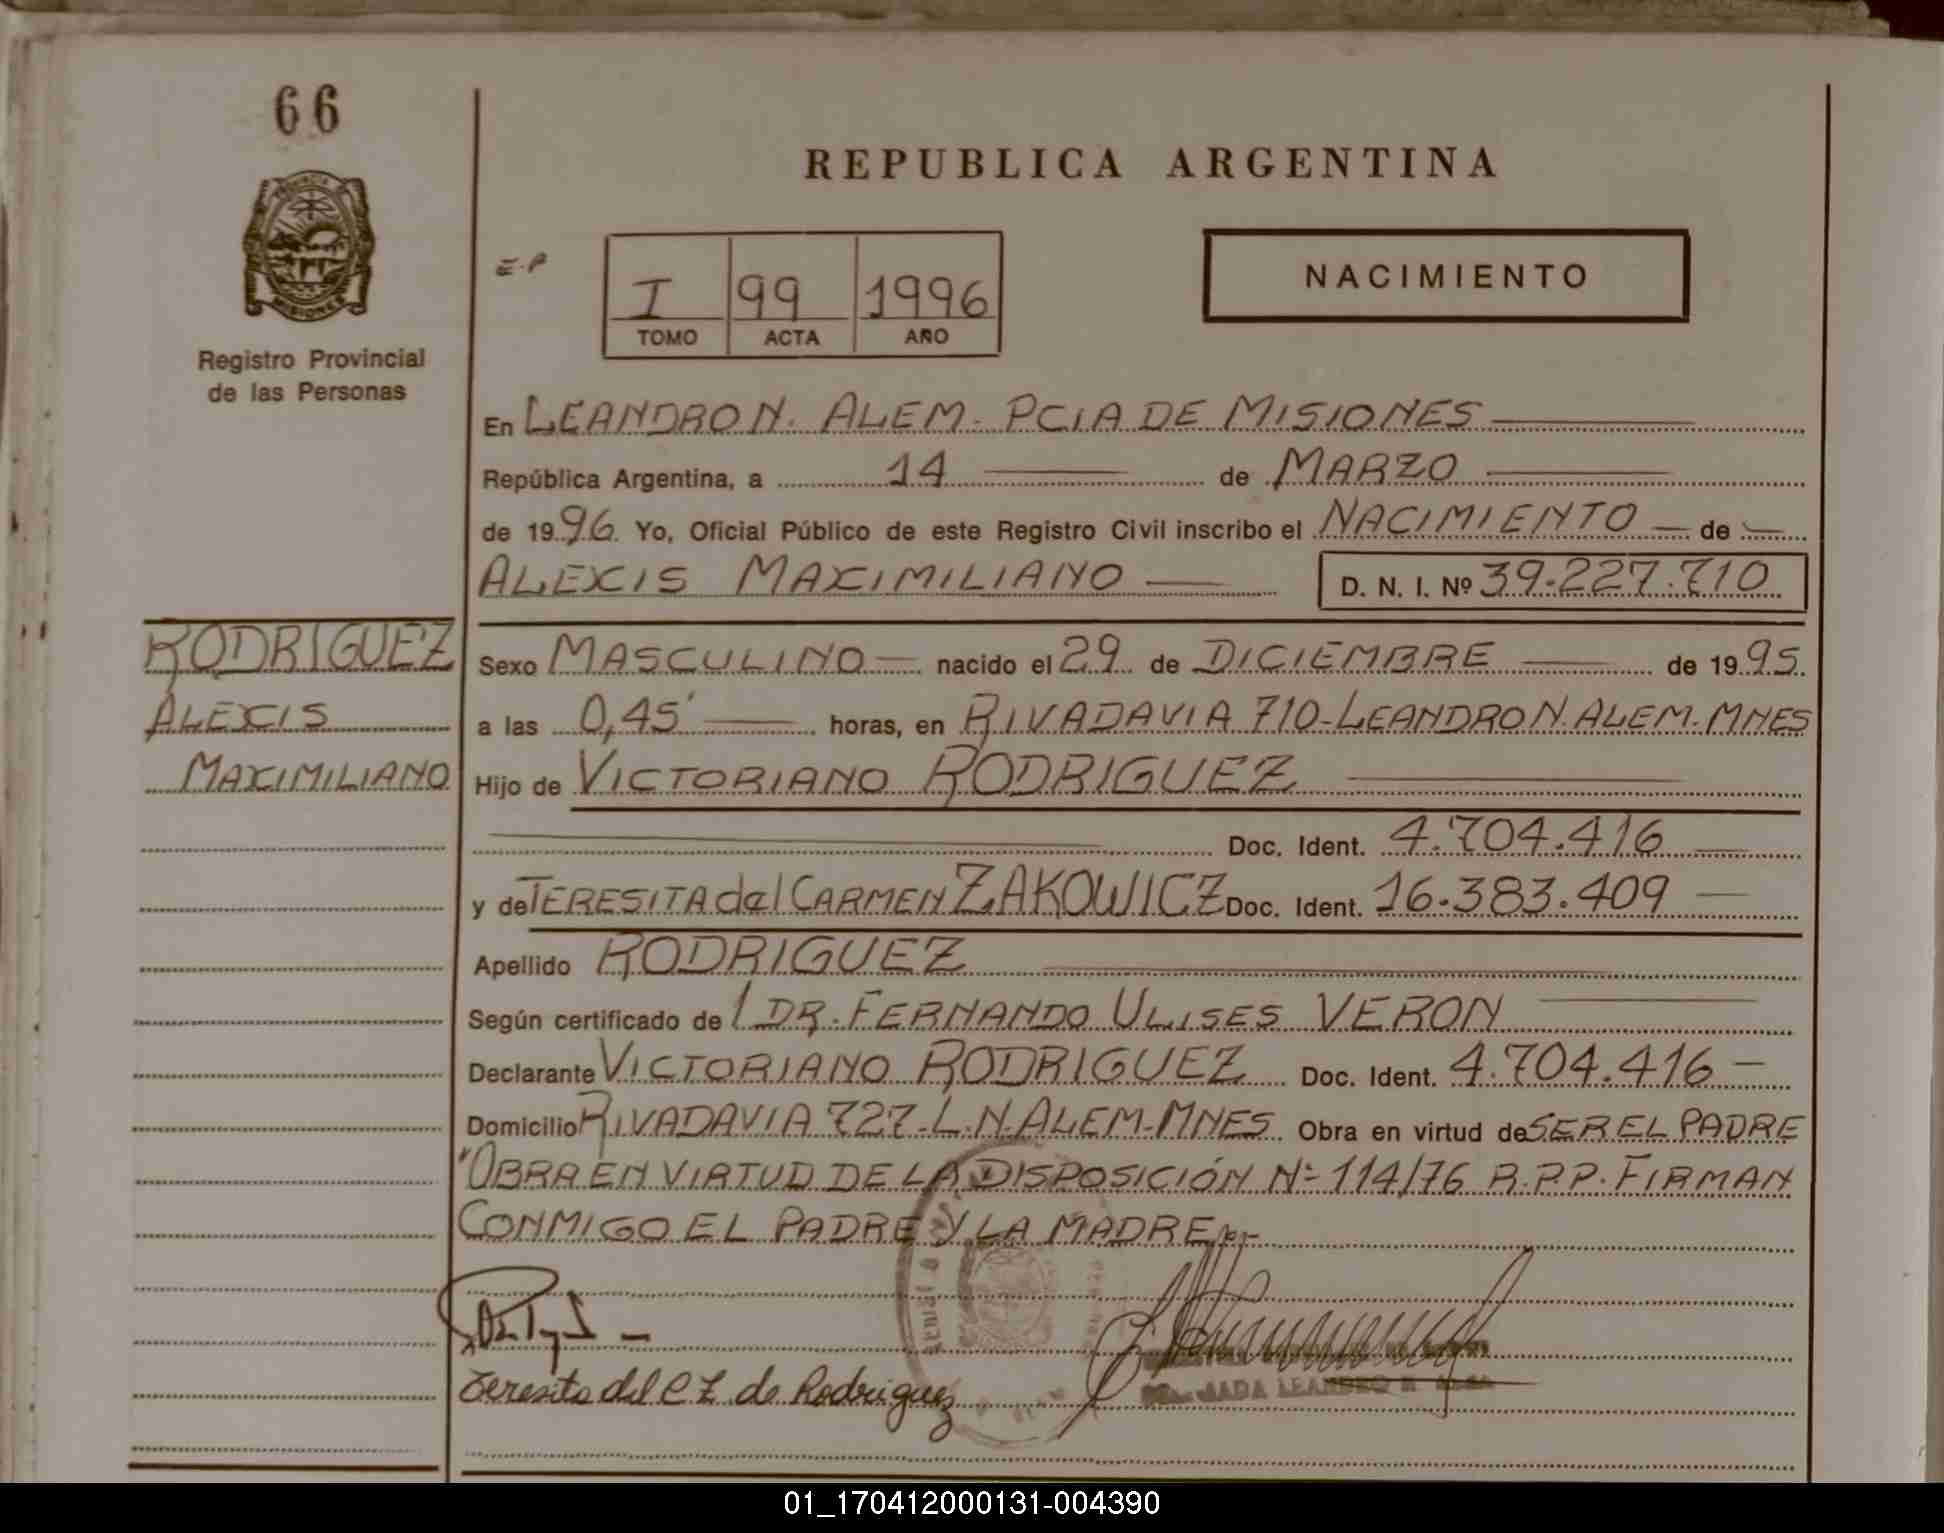 66
REPUBLICA ARGENTINA
PROVINCIA DE
MISIONES
Registro Provincial
de las Personas
E.P
I 99 1996
TOMO ACTA AÑO
NACIMIENTO
En LEANDRO N. ALEM - PCIA DE MISIONES
República Argentina, a 14 de MARZO
de 1996 Yo, Oficial Público de este Registro Civil inscribo el NACIMIENTO de
ALEXIS MAXIMILIANO D. N. I. Nº 39.227.710
RODRIGUEZ
ALEXIS
MAXIMILIANO
Sexo MASCULINO nacido el 29 de DICIEMBRE de 1995
a las 0,45' horas, en RIVADAVIA 710-LEANDRO N. ALEM-MNES
Hijo de VICTORIANO RODRIGUEZ
Doc. Ident. 4.704.416
y de TERESITA del CARMEN ZAKOWICZ Doc. Ident. 16.383.409
Apellido RODRIGUEZ
Según certificado de l DR. FERNANDO ULISES VERON
Declarante VICTORIANO RODRIGUEZ Doc. Ident. 4.704.416
Domicilio RIVADAVIA 727-L.N.ALEM-MNES Obra en virtud de SER EL PADRE
"OBRA EN VIRTUD DE LA DISPOSICIÓN Nº 114/76 R.P.P. FIRMAN
CONMIGO EL PADRE Y LA MADRE
Teresita del C Z. de Rodriguez
LEANDRO N. ALEM
01_170412000131-004390